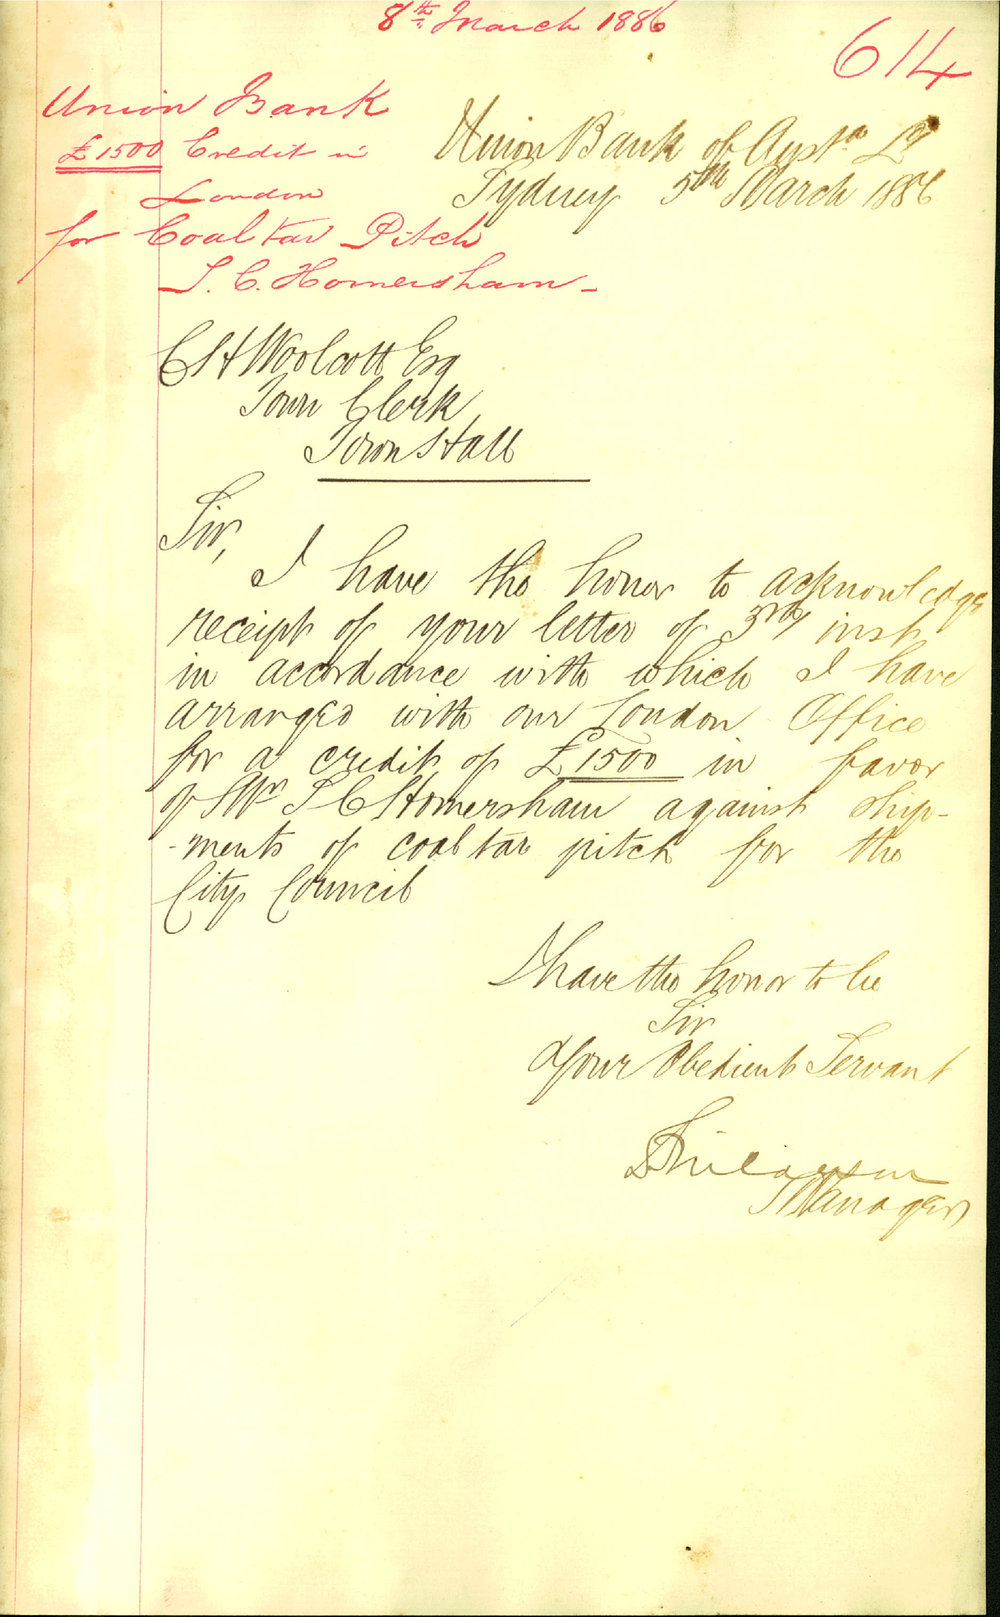 8th March 1886
614
Union Bank
£1500 Credit in
London
for Coal tar Pitch
S. C. Homersham -
Union Bank of Austa Ld
Sydney 5th March 1886
C H Woolcott Esq
Town Clerk
Town Hall
Sir,
I have the honor to acknowledge
receipt of your letter of 3rd inst
in accordance with which I have
arranged with our London Office
for a credit of £1500 in favor
of Mr S C Homersham against ship-
-ments of coal tar pitch for the
City Council
I have the honor to be
Sir
Your Obedient Servant
Manager